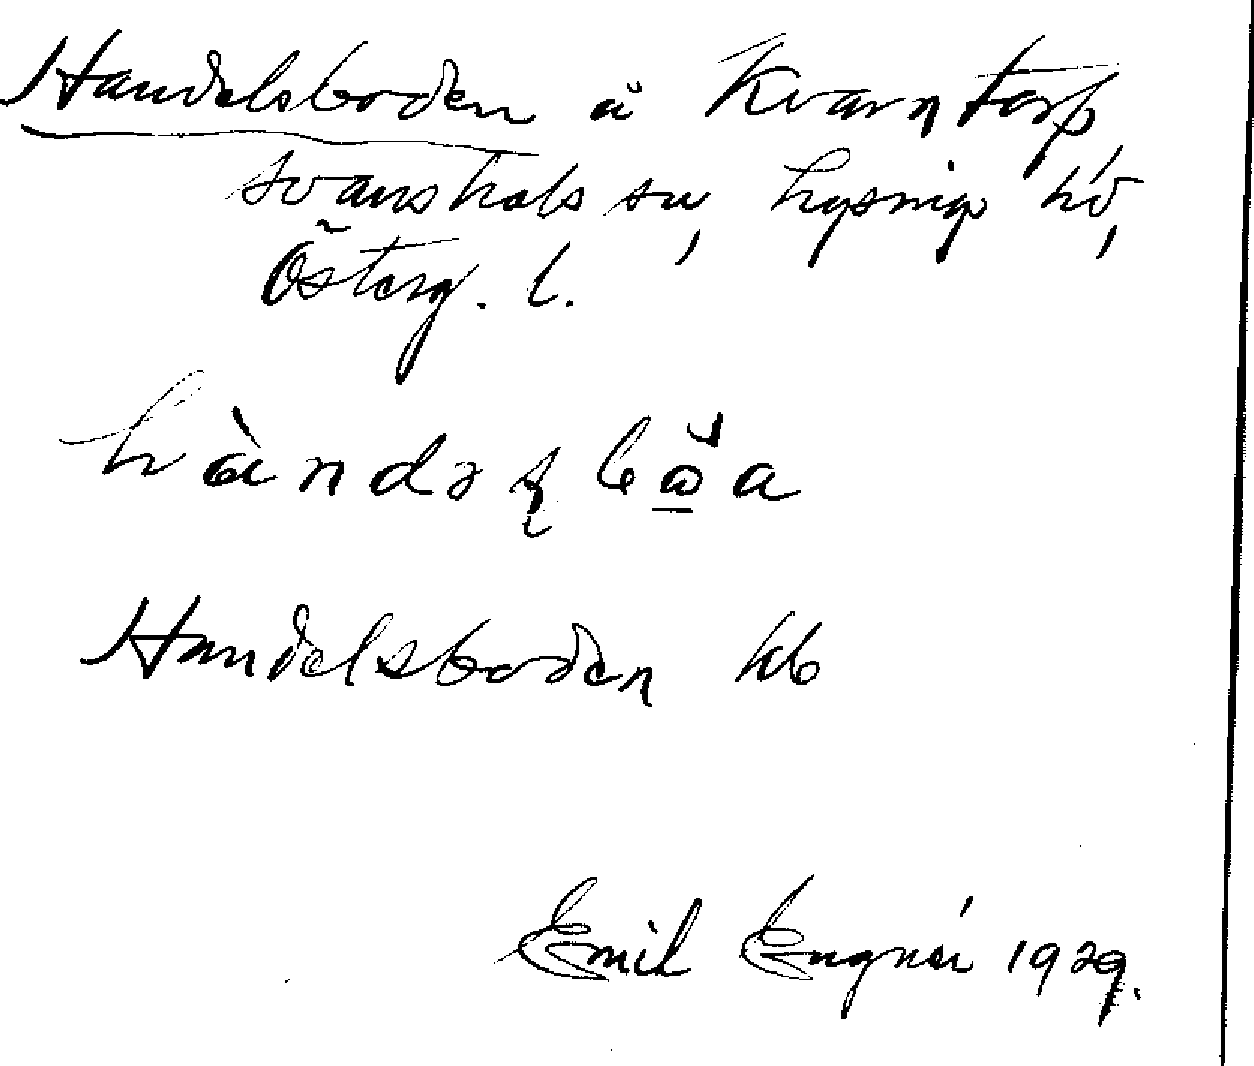 Handelsboden å Kvarntorp,
Svanshals sn, Lysings hd,
Österg. l.
hàndəʂbω̲̆a
Handelsboden kb
Emil Engnér 1929.